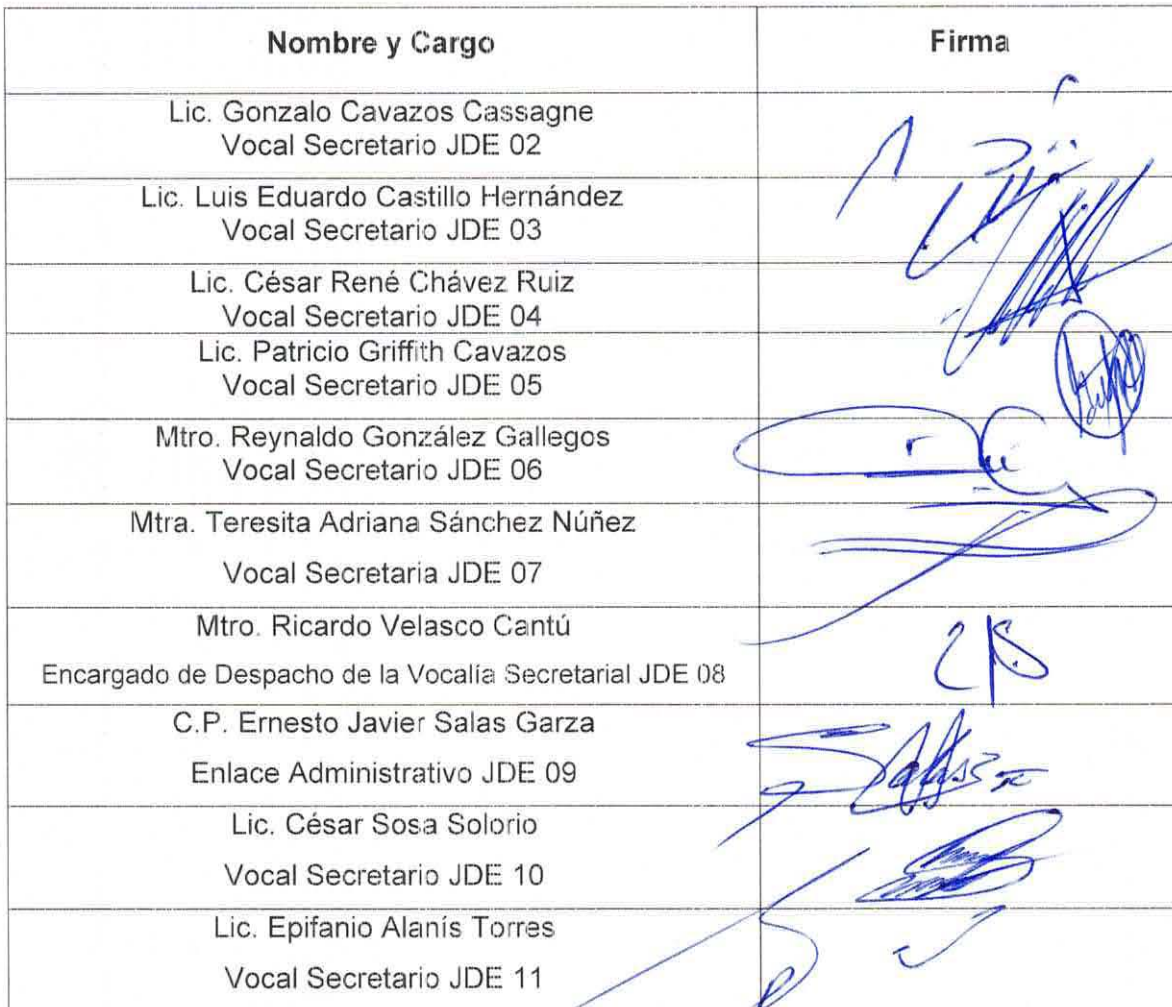 Nombre y Cargo
Firma
Lic. Gonzalo Cavazos Cassagne
Vocal Secretario JDE 02
Lic. Luis Eduardo Castillo Hernández
Vocal Secretario JDE 03
Lic. César René Chávez Ruiz
Vocal Secretario JDE 04
Lic. Patricio Griffith Cavazos
Vocal Secretario JDE 05
Mtro. Reynaldo González Gallegos
Vocal Secretario JDE 06
Mtra. Teresita Adriana Sánchez Núñez
Vocal Secretaria JDE 07
Mtro. Ricardo Velasco Cantú
Encargado de Despacho de la Vocalía Secretarial JDE 08
C.P. Ernesto Javier Salas Garza
Enlace Administrativo JDE 09
Lic. César Sosa Solorio
Vocal Secretario JDE 10
Lic. Epifanio Alanís Torres
Vocal Secretario JDE 11